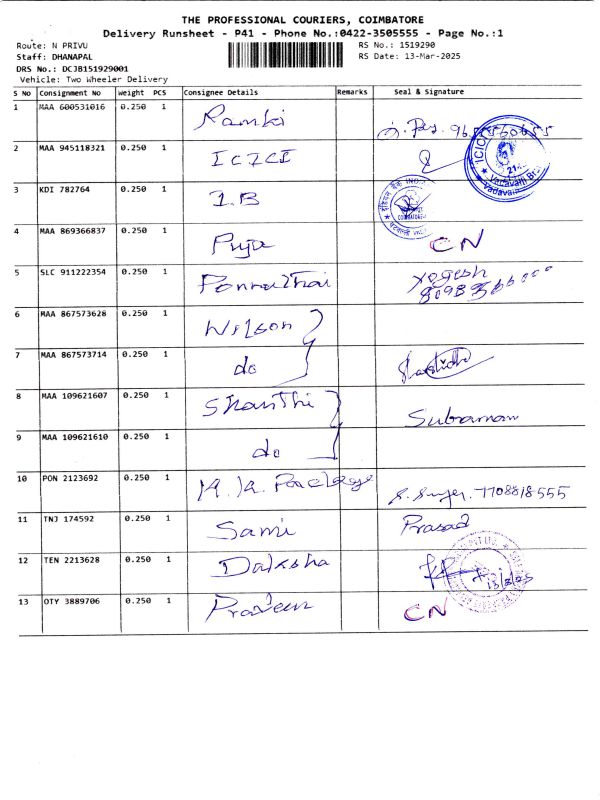 THE PROFESSIONAL COURIERS, COIMBATORE
Delivery Runsheet - P41 - Phone No.:0422-3505555 - Page No.:1
Route: N PRIVU RS No.: 1519290
Staff: DHANAPAL RS Date: 13-Mar-2025
DRS No.: DCJB151929001
Vehicle: Two Wheeler Delivery
S No Consignment No Weight PCS Consignee Details Remarks Seal & Signature
1 MAA 600531016 0.250 1 Ramki
2 MAA 945118321 0.250 1 ICICI
3 KDI 782764 0.250 1 I.B
4 MAA 869366837 0.250 1 Puja CN
5 SLC 911222354 0.250 1 Yogesh
6 MAA 867573628 0.250 1 Wilson
7 MAA 867573714 0.250 1 do
8 MAA 109621607 0.250 1 Shanthi Subramam
9 MAA 109621610 0.250 1 do
10 PON 2123692 0.250 1 7708818555
11 TNJ 174592 0.250 1 Sami Prasad
12 TEN 2213628 0.250 1 Daksha
13 OTY 3889706 0.250 1 Praveen CN